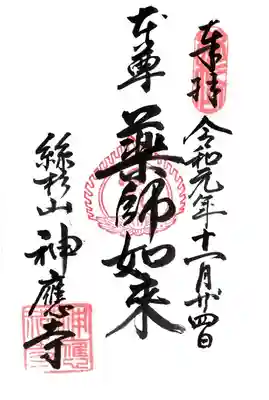 奉拝
令和元年十一月廿四日
本尊
薬師如来
絲杉山
神應寺